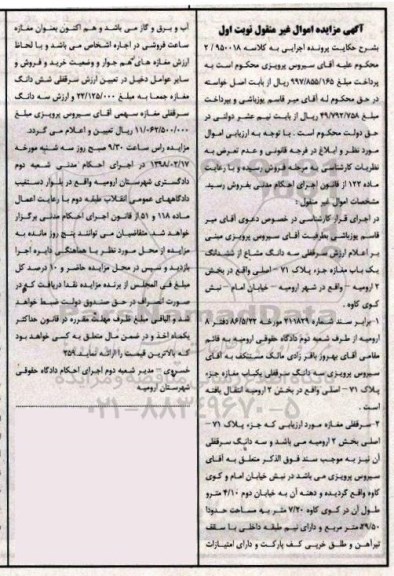 آگهی مزایده اموال غیر منقول نوبت اول
بشرح حکایت پرونده اجرایی به کلاسه ۹۵۰۰۱۸ / ۲
محکوم علیه آقای سیروس پرویزی محکوم است به
پرداخت مبلغ ۹۹۷/۸۵۵/۱۶۵ ریال از بابت اصل خواسته
در حق محکوم له آقای میر قاسم یوزباشی و بپرداخت
مبلغ ۳۹/۷۹۲/۷۵۸ ریال از بابت نیم عشر دولتی در
حق دولت محکوم است . با توجه به ارزیابی اموال
مورد نظر و ابلاغ در فرجه قانونی و عدم تعرض به
نظریات کارشناسی به مرحله فروش رسیده و با رعایت
ماده ۱۲۲ از قانون اجرای احکام مدنی بفروش رسید.
مشخصات اموال غیر منقول :
در اجرای قرار کارشناسی در خصوص دعوی آقای میر
قاسم یوزباشی بطرفیت آقای سیروس پرویزی مبنی
بر اعلام ارزش سرقفلی سه دانگ مشاع از ششدانگ
یک باب مغازه جزء پلاک ۷۱ - اصلی واقع در بخش
۲ ارومیه - واقع در شهر ارومیه - خیابان امام - نبش
کوی کاوه .
۱- برابر سند شماره ۲۱۱۸۳۹ مورخه ۸۶/۵/۲۲ دفتر ۸
ارومیه از طرف شعبه دوم دادگاه حقوقی ارومیه به قائم
مقامی آقای بهروز باقر زادی مالک مستنکف به آقای
سیروس پرویزی سه دانگ سرقفلی یکباب مغازه جزء
پلاک ۷۱ - اصلی واقع در بخش ۲ ارومیه انتقال یافته
است .
۲- سرقفلی مغازه مورد ارزیابی که جزء پلاک ۷۱ -
اصلی بخش ۲ ارومیه می باشد و سه دانگ سرقفلی
آن نیز به موجب سند فوق الذکر متعلق به آقای
سیروس پرویزی می باشد در نبش خیابان امام و کوی
کاوه واقع گردیده و دهنه آن به خیابان دوم ۴/۱۰ مترو
طول آن در کوی کاوه ۷/۲۰ متر به مساحت حدودا
۲۹/۵۰ متر مربع و دارای نیم طبقه داخلی با سقف
تیرآهن و طلق خربی کف پارکت و دارای امتیازات
آب و برق و گاز می باشد و هم اکنون بعنوان مغازه
ساعت فروشی در اجاره اشخاص می باشد و با لحاظ
ارزش مغازه های هم جوار و وضعیت خرید و فروش و
سایر عوامل دخیل در تعیین ارزش سرقفلی شش دانگ
مغازه جمعا به مبلغ ۲۲/۱۲۵/۰۰۰ و ارزش سه دانگ
سرقفلی مغازه سهمی آقای سیروس پرویزی مبلغ
۱۱/۰۶۲/۵۰۰/۰۰۰ ریال تعیین و اعلام می گردد.
مزایده راس ساعت ۹/۳۰ صبح روز سه شنبه مورخه
۱۳۹۸/۰۲/۱۷ در اجرای احکام مدنی شعبه دوم
دادگستری شهرستان ارومیه واقع در بلوار دستغیب
دادگاههای عمومی انقلاب طبقه دوم با رعایت اعمال
ماده ۱۱۸ و ۵۱ از قانون اجرای احکام مدنی برگزار
خواهد شد متقاضیان می توانند پنج روز مانده به
مزایده از محل مورد نظر با هماهنگی دایره اجرا
بازدید و سپس در محل مزایده حاضر و ۱۰ درصد کل
مبلغ فی المجلس از برنده مزایده نقدا دریافت که در
صورت انصراف در حق صندوق دولت ضبط خواهد
شد و الباقی مبلغ ظرف مهلت مقرره در قانون حداکثر
یکماه اخذ و در ضمن مال متعلق به کسی خواهد بود
که بالاترین قیمت را ارائه نماید.۲۵۹
خسروی - مدیر شعبه دوم اجرای احکام دادگاه حقوقی
شهرستان ارومیه
۰۲۱-۸۸۳۴۹۶۷۰-۵